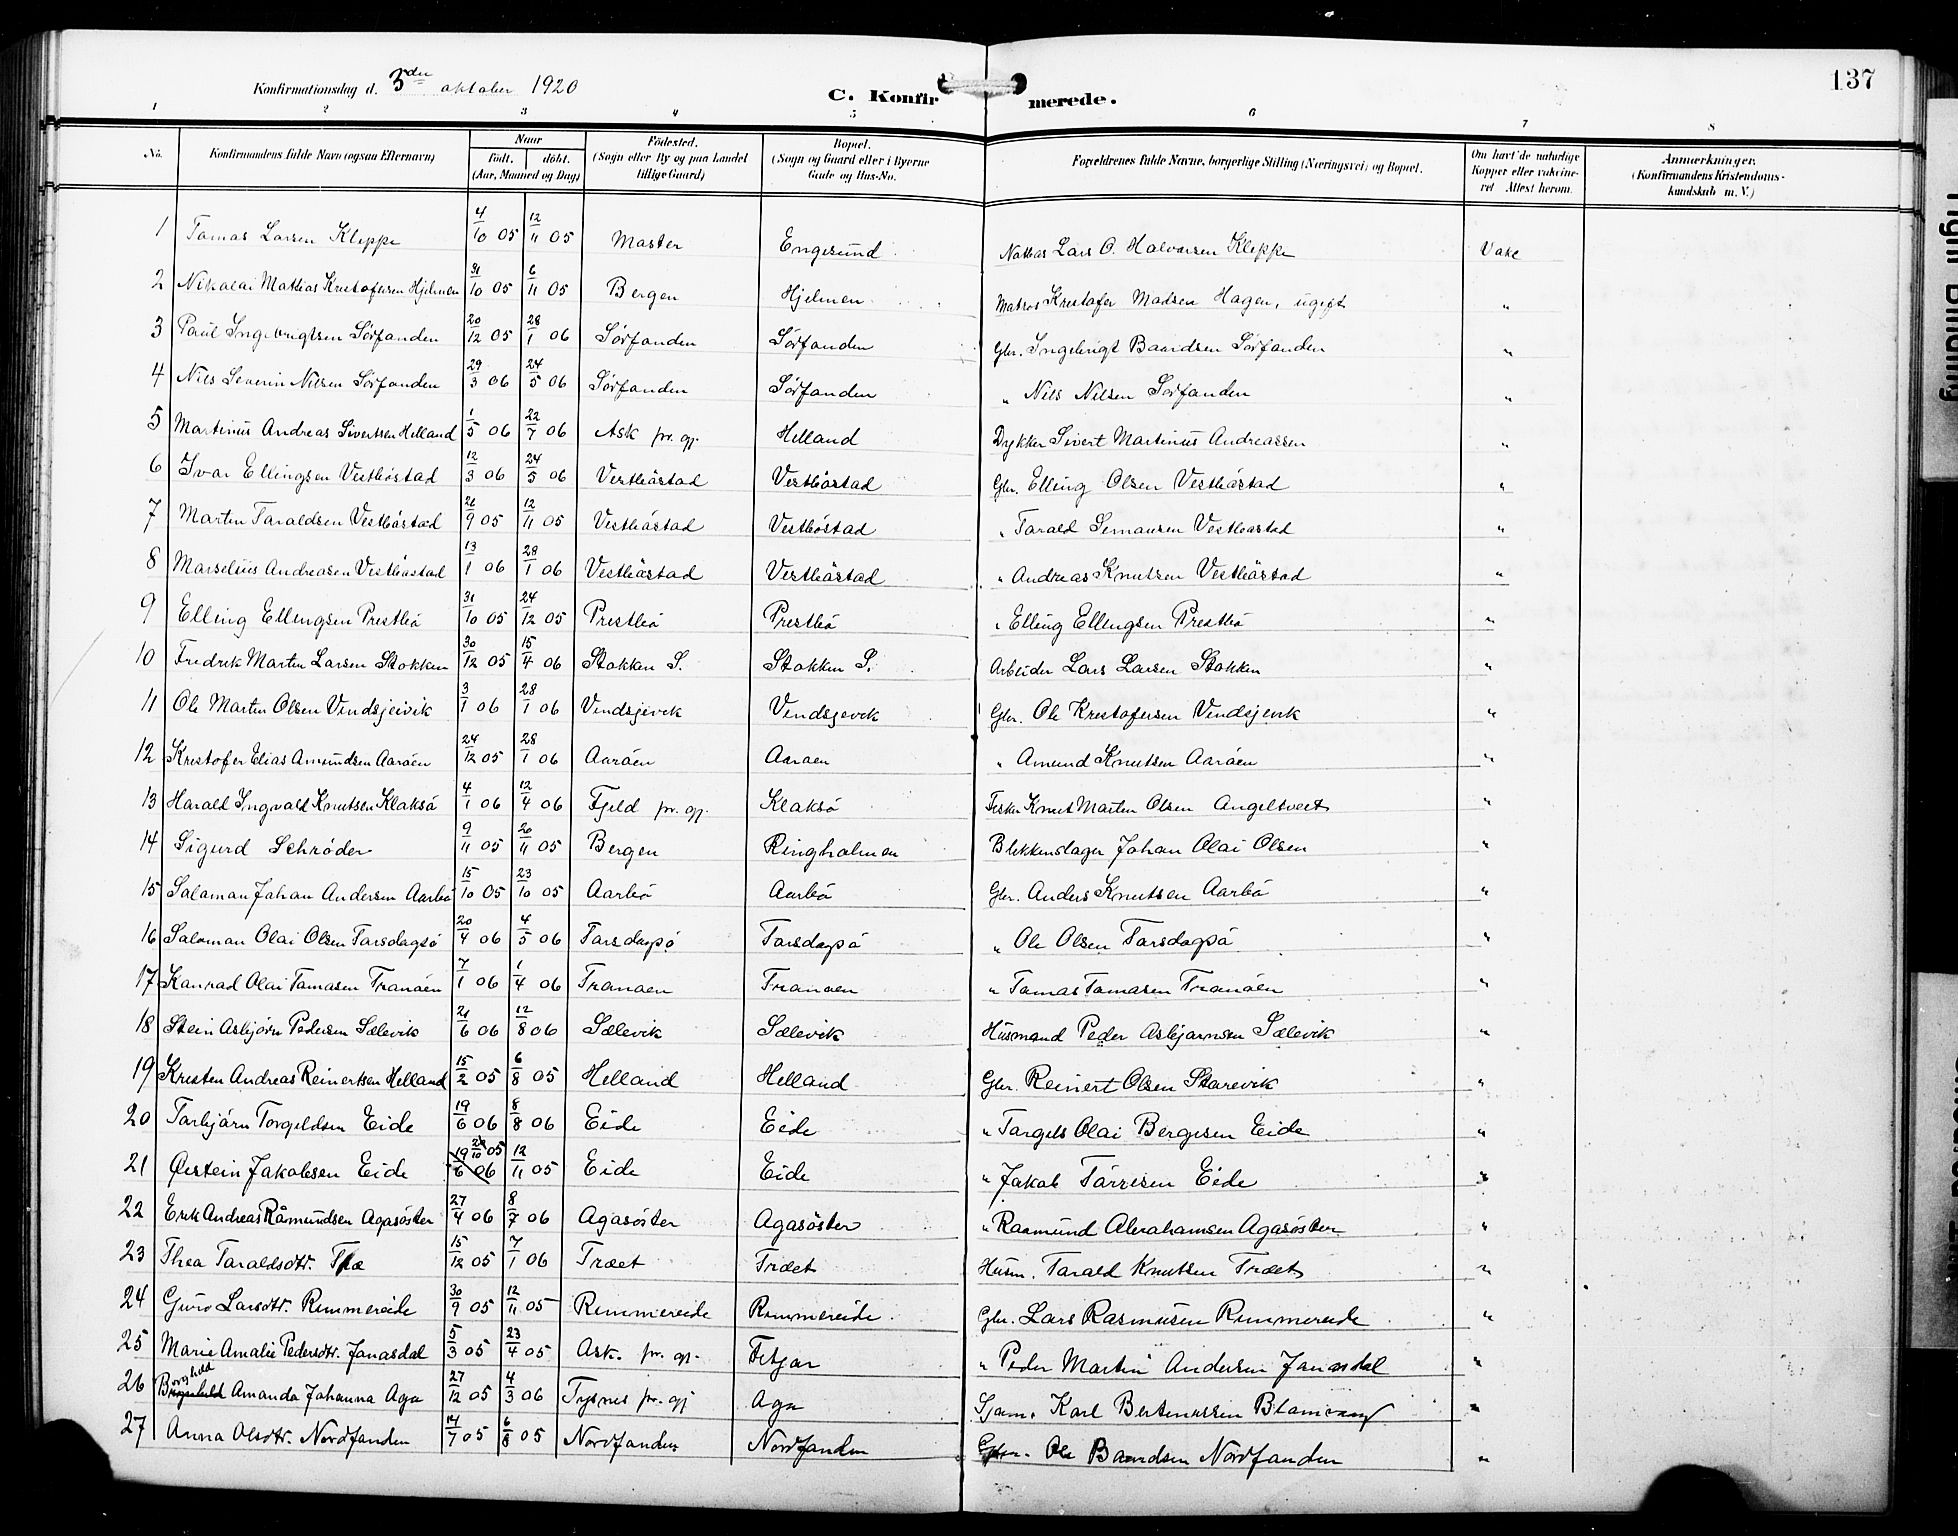 137
Konfirmationsdag d. 3die oktober 1920
C. Konfirmerede.
1 2 3 4 5 6 7 8
No. Konfirmandens fulde Navn (ogsaa Efternavn) Naar født. døbt. (Aar, Maaned og Dag) Födested. (Sogn eller By og paa Landet tillige Gaard) Bopæl. (Sogn og Gaard eller i Byerne Gade og Hus-No. Forældrenes fulde Navne, borgerlige Stilling (Næringsvei) og Bopæl. Om havt de naturlige Kopper eller vakcineret Attest herom. Anmærkninger. (Konfirmandens Kristendomskundskab m. V.)
1 Tomas Larsen Kleppe 4/10 05 12/11 05 Moster Engesund Lars O. Halvorsen Kleppe Vake
2 Nikolai Mathias Kristofersen Hjelmen 31/10 05 6/11 05 Bergen Hjelmen Matros Kristofer Madsen Hagen, ugift "
3 Paul Ingebrigtsen Sørfonden 20/12 05 28/1 06 Sørfonden Sørfonden Gbr. Ingebrigt Baardsen Sørfonden "
4 Nils Severin Nilsen Sørfonden 29/3 06 24/5 06 Sørfonden Sørfonden " Nils Nilsen Sørfonden "
5 Martinus Andreas Sivertsen Helland 1/5 06 22/7 06 Ask pr. gj. Helland Dykker Sivert Martinus Andreassen "
6 Ivar Ellingsen Vestbøstad 12/3 06 24/5 06 Vestbøstad Vestbøstad Gbr. Elling Olsen Vestbøstad "
7 Martin Taraldsen Vestbøstad 26/9 05 12/11 05 Vestbøstad Vestbøstad " Tarald Semonsen Vestbøstad "
8 Marselius Andreasen Vestbøstad 13/1 06 28/1 06 Vestbøstad Vestbøstad " Andreas Knutsen Vestbøstad "
9 Elling Ellingsen Prestbø 31/10 05 24/12 05 Prestbø Prestbø " Elling Ellingsen Prestbø "
10 Fredrik Martin Larsen Stokken 30/12 05 15/4 06 Stokken S. Stokken S. Arbeider Lars Larsen Stokken "
11 Ole Martin Olsen Vindsjeivik 3/1 06 28/1 06 Vindsjevik Vindsjevik Gbr. Ole Kristofersen Vindsjevik "
12 Kristofer Elias Amundsen Aarøen 24/12 05 28/1 06 Aarøen Aarøen " Amund Knutsen Aarøen "
13 Harald Ingvald Knutsen Kloksø 4/1 06 12/4 06 Fjeld pr. gj. Kloksø Fisker Knut Martin Olsen Angeltveit "
14 Sigurd Schrøder 9/11 05 20/11 05 Bergen Ringholmen Blikkenslager Johan Olai Olsen "
15 Salomon Johan Andersen Aarbø 15/10 05 23/10 05 Aarbø Aarbø Gbr. Anders Knutsen Aarbø "
16 Salomon Olai Olsen Torsdagsø 20/4 06 4/5 06 Torsdagsø Torsdagsø " Ole Olsen Torsdagsø "
17 Konrad Olai Tomasen Tranøen 7/1 06 1/4 06 Tranøen Tranøen " Tomas Tomasen Tranøen "
18 Stein Asbjørn Pedersen Sælevik 21/6 06 12/8 06 Sælevik Sælevik Husmand Peder Asbjørnsen Sælevik "
19 Kristen Andreas Reinertsen Helland 15/2 05 6/8 05 Helland Helland Gbr. Reinert Olsen Storevik "
20 Torbjørn Torgeldsen Eide 19/6 06 8/8 06 Eide Eide " Torgels Olai Bergesen Eide "
21 Øistein Jakobsen Eide 19/6 06 05 12/11 05 Eide Eide " Jakob Tørrisen Eide "
22 Erik Andreas Råsmundsen Agasøster 27/4 06 8/7 06 Agasøster Agasøster " Rasmund Abrahamsen Agasøster "
23 Thea Taraldsdtr. Træ 15/12 05 7/1 06 Træet Træet Husm. Tarald Knutsen Træet "
24 Guro Larsdtr. Rimmereide 30/9 05 12/11 05 Rimmereide Rimmereide Gbr. Lars Rasmusen Rimmereide "
25 Marie Amalie Pedersdtr. Jonasdal 5/3 05 23/4 05 Ask. pr. gj. Fitjar " Peder Martin Andersen Jonasdal "
26 Borghild Amanda Johanna Aga 27/12 05 4/3 06 Tysnes pr. gj Aga Sjøm. Karl "
27 Anna Olsdtr. Nordfonden 14/7 05 6/8 05 Nordfonden Nordfonden Gbr. Ole Baardsen Nordfonden "